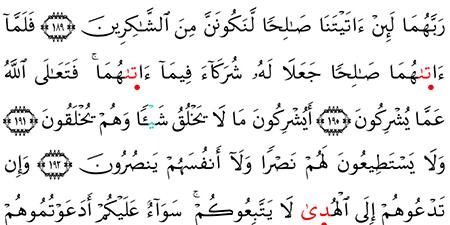 رَبَّهُمَا لَئِنْ ءَاتَيْتَنَا صَٰلِحًا لَّنَكُونَنَّ مِنَ ٱلشَّٰكِرِينَ ﴿١٨٩﴾ فَلَمَّآ
ءَاتَىٰهُمَا صَٰلِحًا جَعَلَا لَهُۥ شُرَكَآءَ فِيمَآ ءَاتَىٰهُمَا ۚ فَتَعَٰلَى ٱللَّهُ
عَمَّا يُشْرِكُونَ ﴿١٩٠﴾ أَيُشْرِكُونَ مَا لَا يَخْلُقُ شَيْـًٔا وَهُمْ يُخْلَقُونَ ﴿١٩١﴾
وَلَا يَسْتَطِيعُونَ لَهُمْ نَصْرًا وَلَآ أَنفُسَهُمْ يَنصُرُونَ ﴿١٩٢﴾ وَإِن
تَدْعُوهُمْ إِلَى ٱلْهُدَىٰ لَا يَتَّبِعُوكُمْ ۚ سَوَآءٌ عَلَيْكُمْ أَدَعَوْتُمُوهُمْ